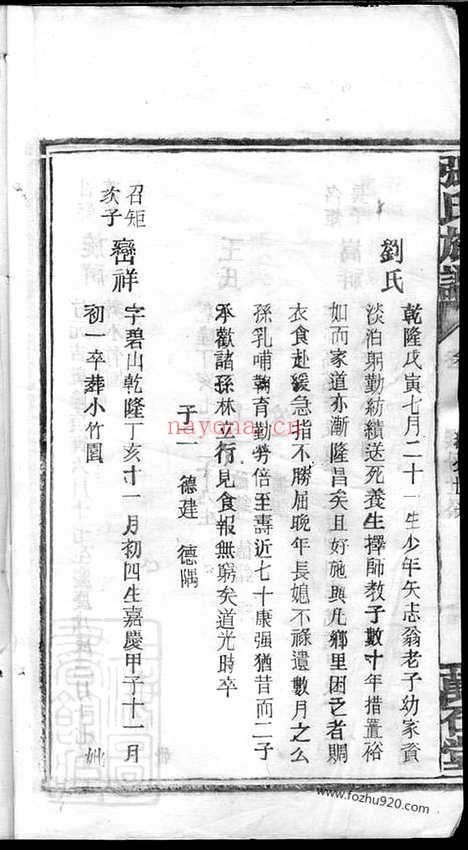 張氏族譜
萬石堂
劉氏
乾隆戊寅七月二十一生少年矢志翁老子幼家資
淡泊躬勤紡績送死養生擇師教子數十年措置裕
如而家道亦漸隆昌矣且好施與凡鄉里困乏者賙
衣食赴緩急指不勝屈晚年長媳不祿遺數月之么
孫乳哺鞠育勤勞倍至壽近七十康强猶昔而二子
承歡諸孫林立行見食報無窮矣道光時卒
子二 德建 德隅
召矩
次子
巒祥
字碧山乾隆丁亥十一月初四生嘉慶甲子十一月
初一卒葬小竹園
nayona.cn
www.fozhu920.com